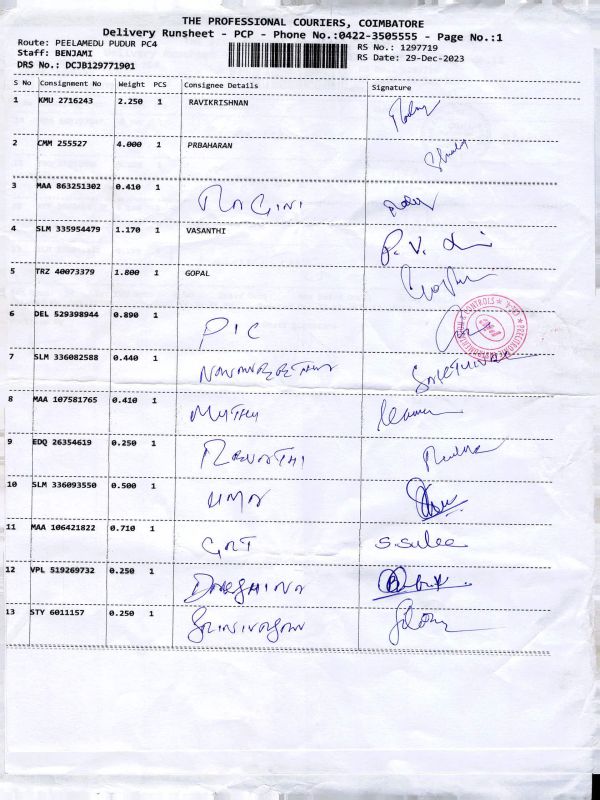 THE PROFESSIONAL COURIERS, COIMBATORE
Delivery Runsheet - PCP - Phone No.:0422-3505555 - Page No.:1
Route: PEELAMEDU PUDUR PC4
RS No.: 1297719
Staff: BENJAMI
RS Date: 29-Dec-2023
DRS No.: DCJB129771901
S No Consignment No Weight PCS Consignee Details Signature
1 KMU 2716243 2.250 1 RAVIKRISHNAN
2 CMM 255527 4.000 1 PRBAHARAN
3 MAA 863251302 0.410 1 RAGINI
4 SLM 335954479 1.170 1 VASANTHI
5 TRZ 40073379 1.800 1 GOPAL
6 DEL 529398944 0.890 1 PIC
7 SLM 336082588 0.440 1
8 MAA 107581765 0.410 1 MUTHU
9 EDQ 26354619 0.250 1 REVATHI
10 SLM 336093550 0.500 1 UMA
11 MAA 106421822 0.710 1 GRT
12 VPL 519269732 0.250 1
13 STY 6011157 0.250 1 SRINIVASAN